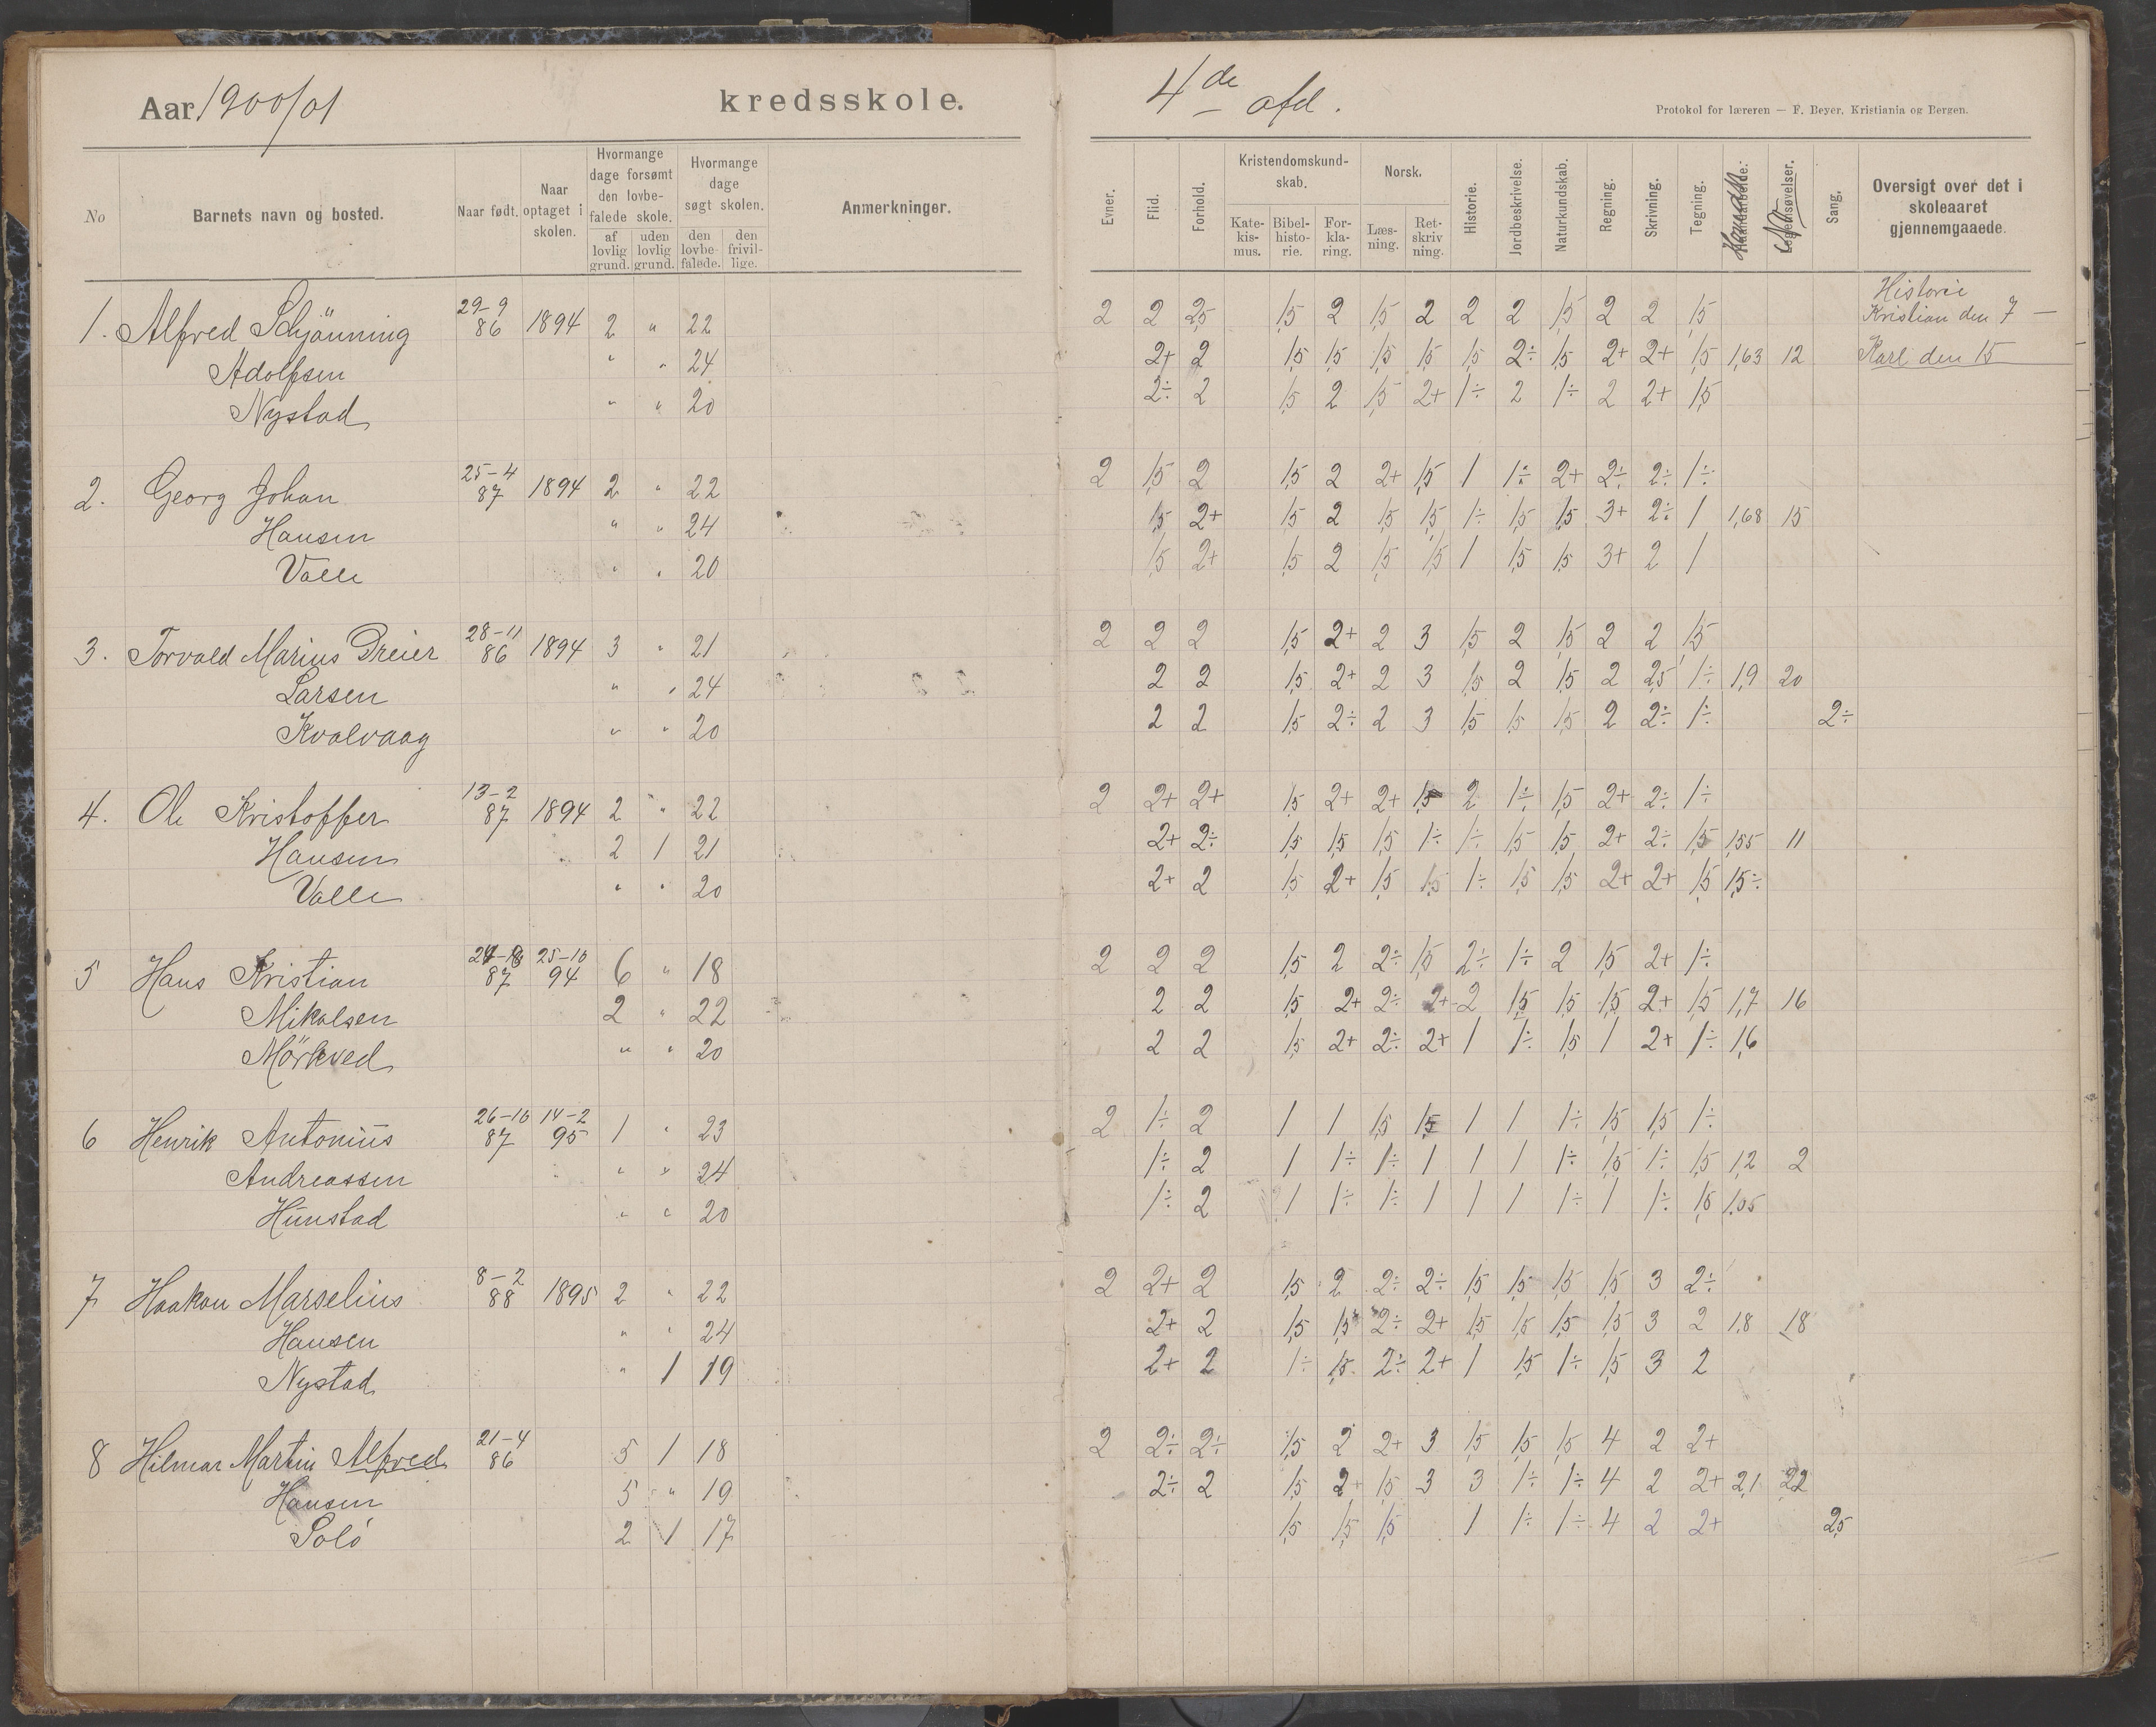 Aar 1900/01 kredsskole. 4de afd.
Protokol for læreren — F. Beyer, Kristiania og Bergen.
No
Barnets navn og bosted.
Naar født.
Naar optaget i skolen.
Hvormange dage forsømt den lovbefalede skole.
af lovlig grund.
uden lovlig grund.
Hvormange dage søgt skolen.
den lovbefalede.
den frivillige.
Anmerkninger.
Evner.
Flid.
Forhold.
Kristendomskundskab.
Katekismus.
Bibelhistorie.
Forklaring.
Norsk.
Læsning.
Retskrivning.
Historie.
Jordbeskrivelse.
Naturkundskab.
Regning.
Skrivning.
Tegning.
Haandarbeide.
Legemsøvelser.
Sang.
Oversigt over det i skoleaaret gjennemgaaede.
Historie
Kristian den 7 —
Karl den 15
1. Alfred Schjänning 29-9 86 1894 2 " 22 2 2 2,5 1,5 2 1,5 2 2 2 1,5 2 2 1,5
Adolfsen " " 24 2+ 2 1,5 1,5 1,5 1,5 1,5 2÷ 1,5 2+ 2+ 1,5 1,63 12
Nystad " " 20 2÷ 2 1,5 2 1,5 2+ 1÷ 2 1÷ 2 2+ 1,5
2. Georg Johan 25-4 87 1894 2 " 22 2 1,5 2 1,5 2 2+ 1,5 1 1÷ 2+ 2÷ 2÷ 1÷
Hansen " " 24 1,5 2+ 1,5 2 1,5 1,5 1÷ 1,5 1,5 3+ 2÷ 1 1,68 15
Valle " " 20 1,5 2+ 1,5 2 1,5 1,5 1 1,5 1,5 3+ 2 1
3. Torvald Marius Dreier 28-11 86 1894 3 " 21 2 2 2 1,5 2+ 2 3 1,5 2 1,5 2 2 1,5
Larsen " " 24 2 2 1,5 2+ 2 3 1,5 2 1,5 2 2,5 1÷ 1,9 20
Kvalvaag " " 20 2 2 1,5 2÷ 2 3 1,5 1,5 1,5 2 2÷ 1÷ 2÷
4. Ole Kristoffer 13-2 87 1894 2 " 22 2 2+ 2+ 1,5 2+ 2+ 1,5 2 1÷ 1,5 2+ 2÷ 1÷
Hansen 2 1 21 2+ 2÷ 1,5 1,5 1,5 1÷ 1÷ 1,5 1,5 2+ 2÷ 1,5 1,55 11
Valle " " 20 2+ 2 1,5 2+ 1,5 1,5 1÷ 1,5 1,5 2+ 2+ 1,5 1,5÷
5 Hans Kristian 87 25-10 94 6 " 18 2 2 2 1,5 2 2÷ 1,5 2÷ 1÷ 2 1,5 2+ 1÷
Mikalsen 2 " 22 2 2 1,5 2+ 2÷ 2+ 2 1,5 1,5 1,5 2+ 1,5 1,7 16
Mörkved " " 20 2 2 1,5 2+ 2÷ 2+ 1 1÷ 1,5 1 2+ 1÷ 1,6
6 Henrik Antonius 26-10 87 14-2 95 1 " 23 2 1÷ 2 1 1 1,5 1,5 1 1 1÷ 1,5 1,5 1÷
Andreassen " " 24 1÷ 2 1 1÷ 1÷ 1 1 1 1÷ 1,5 1÷ 1,5 1,2 2
Hunstad " " 20 1÷ 2 1 1÷ 1÷ 1 1 1 1÷ 1 1÷ 1,5 1,05
7 Haakon Marselius 8-2 88 1895 2 " 22 2 2+ 2 1,5 2 2÷ 2÷ 1,5 1,5 1,5 1,5 3 2÷
Hansen " " 24 2+ 2 1,5 1,5 2÷ 2+ 1,5 1,5 1,5 1,5 3 2 1,8 18
Nystad " 1 19 2+ 2 1÷ 1,5 2÷ 2+ 1 1,5 1÷ 1,5 3 2
8 Hilmar Martin Alfred 21-4 86 5 1 18 2 2÷ 2÷ 1,5 2 2+ 3 1,5 1,5 1,5 4 2 2+
Hansen 5 " 19 2÷ 2 1,5 2+ 1,5 3 3 1÷ 1÷ 4 2 2+ 2,1 22
Solö 2 1 17 1,5 1,5 1,5 1 1÷ 1÷ 4 2 2+ 2,5